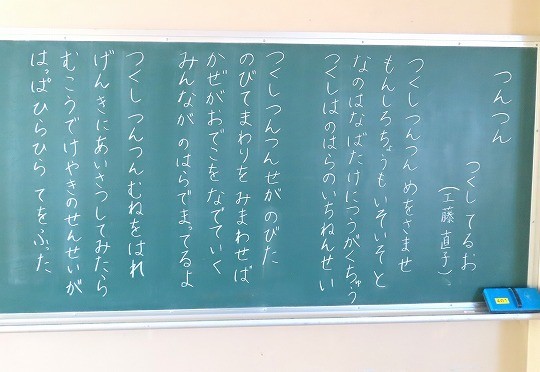 つんつん
つくしてるお
（工藤 直子）
つくしつんつんめをさませ
もんしろちょうもいそいそと
なのはなばたけにつうがくちゅう
つくしはのはらのいちねんせい
つくしつんつんせがのびた
のびてまわりをみまわせば
かぜがおでこをなでていく
みんながのはらでまってるよ
つくしつんつんむねをはれ
げんきにあいさつしてみたら
むこうでけやきのせんせいが
はっぱひらひらてをふった